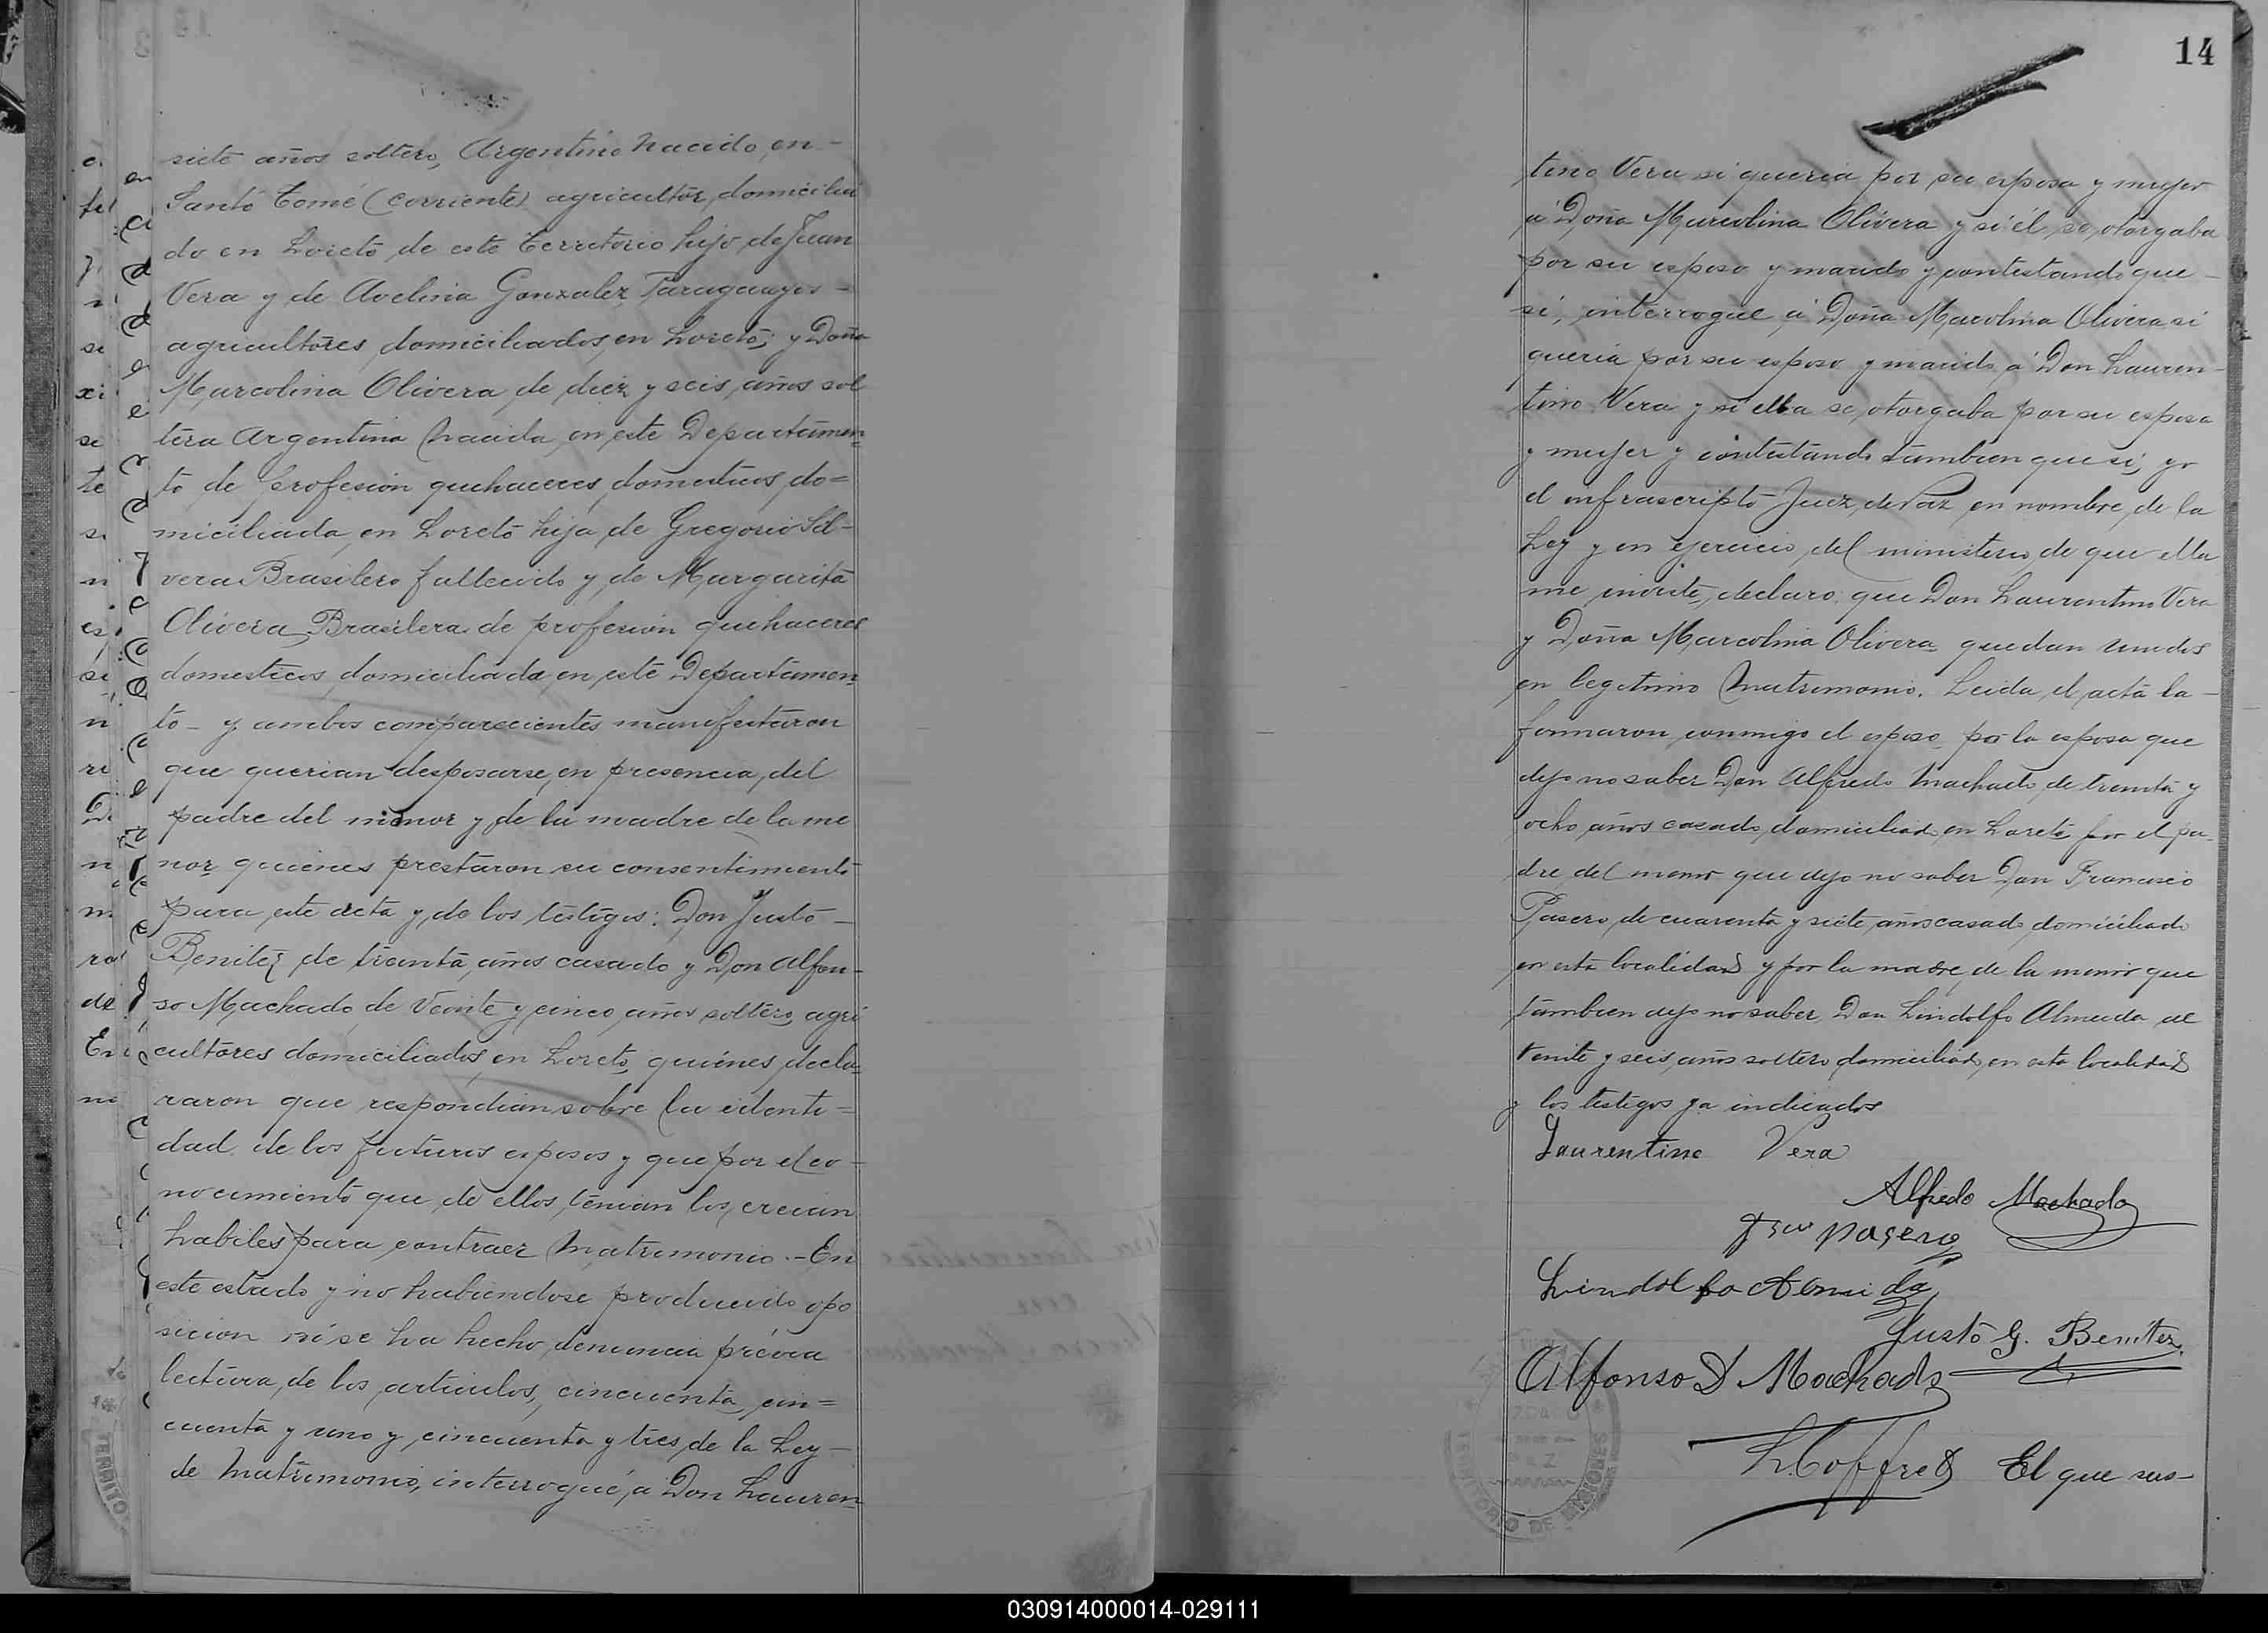 siete años soltero, Argentino nacido en -
Santo Tomé (Corriente) agricultor, domicilia
do en Loreto de este Territorio hijo de Juan
Vera y de Avelina Gonzalez Paraguayos =
agricultores, domiciliados en Loreto; y Doña
Marcolina Olivera de diez y seis años sol
tera Argentina nacida en este Departamen=
to de Profesion quehaceres domesticos, do=
miciliada en Loreto hija de Gregorio Sil-
vera Brasilero fallecido y de Margarita
Olivera Brasilera de profesion quehaceres
domesticos domiciliada en este Departamen=
to - y ambos comparecientes manifestaron
que querian desposarse, en presencia del
padre del menor y de la madre de la me
nor quienes prestaron su consentimiento
para este acta y de los testigos: Don Justo -
Benitez de treinta años casado y Don Alfon-
so Machado de veinte y cinco años soltero, agri
cultores domiciliados en Loreto, quiénes decla=
raron que respondian sobre la identi=
dad de los futuros esposos y que por el co-
nocimiento que de ellos tenian los creian
habiles para contraer Matrimonio.- En
este estado y no habiendose producido opo
sicion ni se ha hecho denuncia prévia
lectura de los articulos, cincuenta, cin=
cuenta y uno y cincuenta y tres de la Ley -
de Matrimonio, interrogué a Don Lauren=
14
tino Vera si queria por su esposa y mujer
a Doña Marcolina Olivera y si él se otorgaba
por su esposo y marido y contestando que -
si, interrogué a Doña Marcolina Olivera si
queria por su esposo y marido a Don Lauren-
tino Vera y si ella se otorgaba por su esposa
y mujer y contestando tambien que si, yo
el infrascripto Juez de Paz en nombre de la
Ley y en ejercicio del ministerio de que ella
me inviste, declaro que Don Laurentino Vera
y Doña Marcolina Olivera quedan unidos
en legitimo Matrimonio. Leida el acta la -
firmaron conmigo el esposo, por la esposa que
dijo no saber Don Alfredo Machado, de treinta y
ocho años casado, domiciliado en Loreto por el pa-
dre del menor que dijo no saber Don Francisco
Pasero, de cuarenta y siete años casado domiciliado
en esta localidad y por la madre de la menor que
tambien dijo no saber Don Lindolfo Almeida de
veinte y seis años soltero domiciliado en esta localidad
y los testigos ya indicados
Laurentino Vera
Alfredo Machado
Fsco Pasero
Lindolfo Almida
Justo G. Benitez.
Alfonso D Machado
El que sus-
TERRITORIO DE MISIONES
TERRITO
030914000014-029111